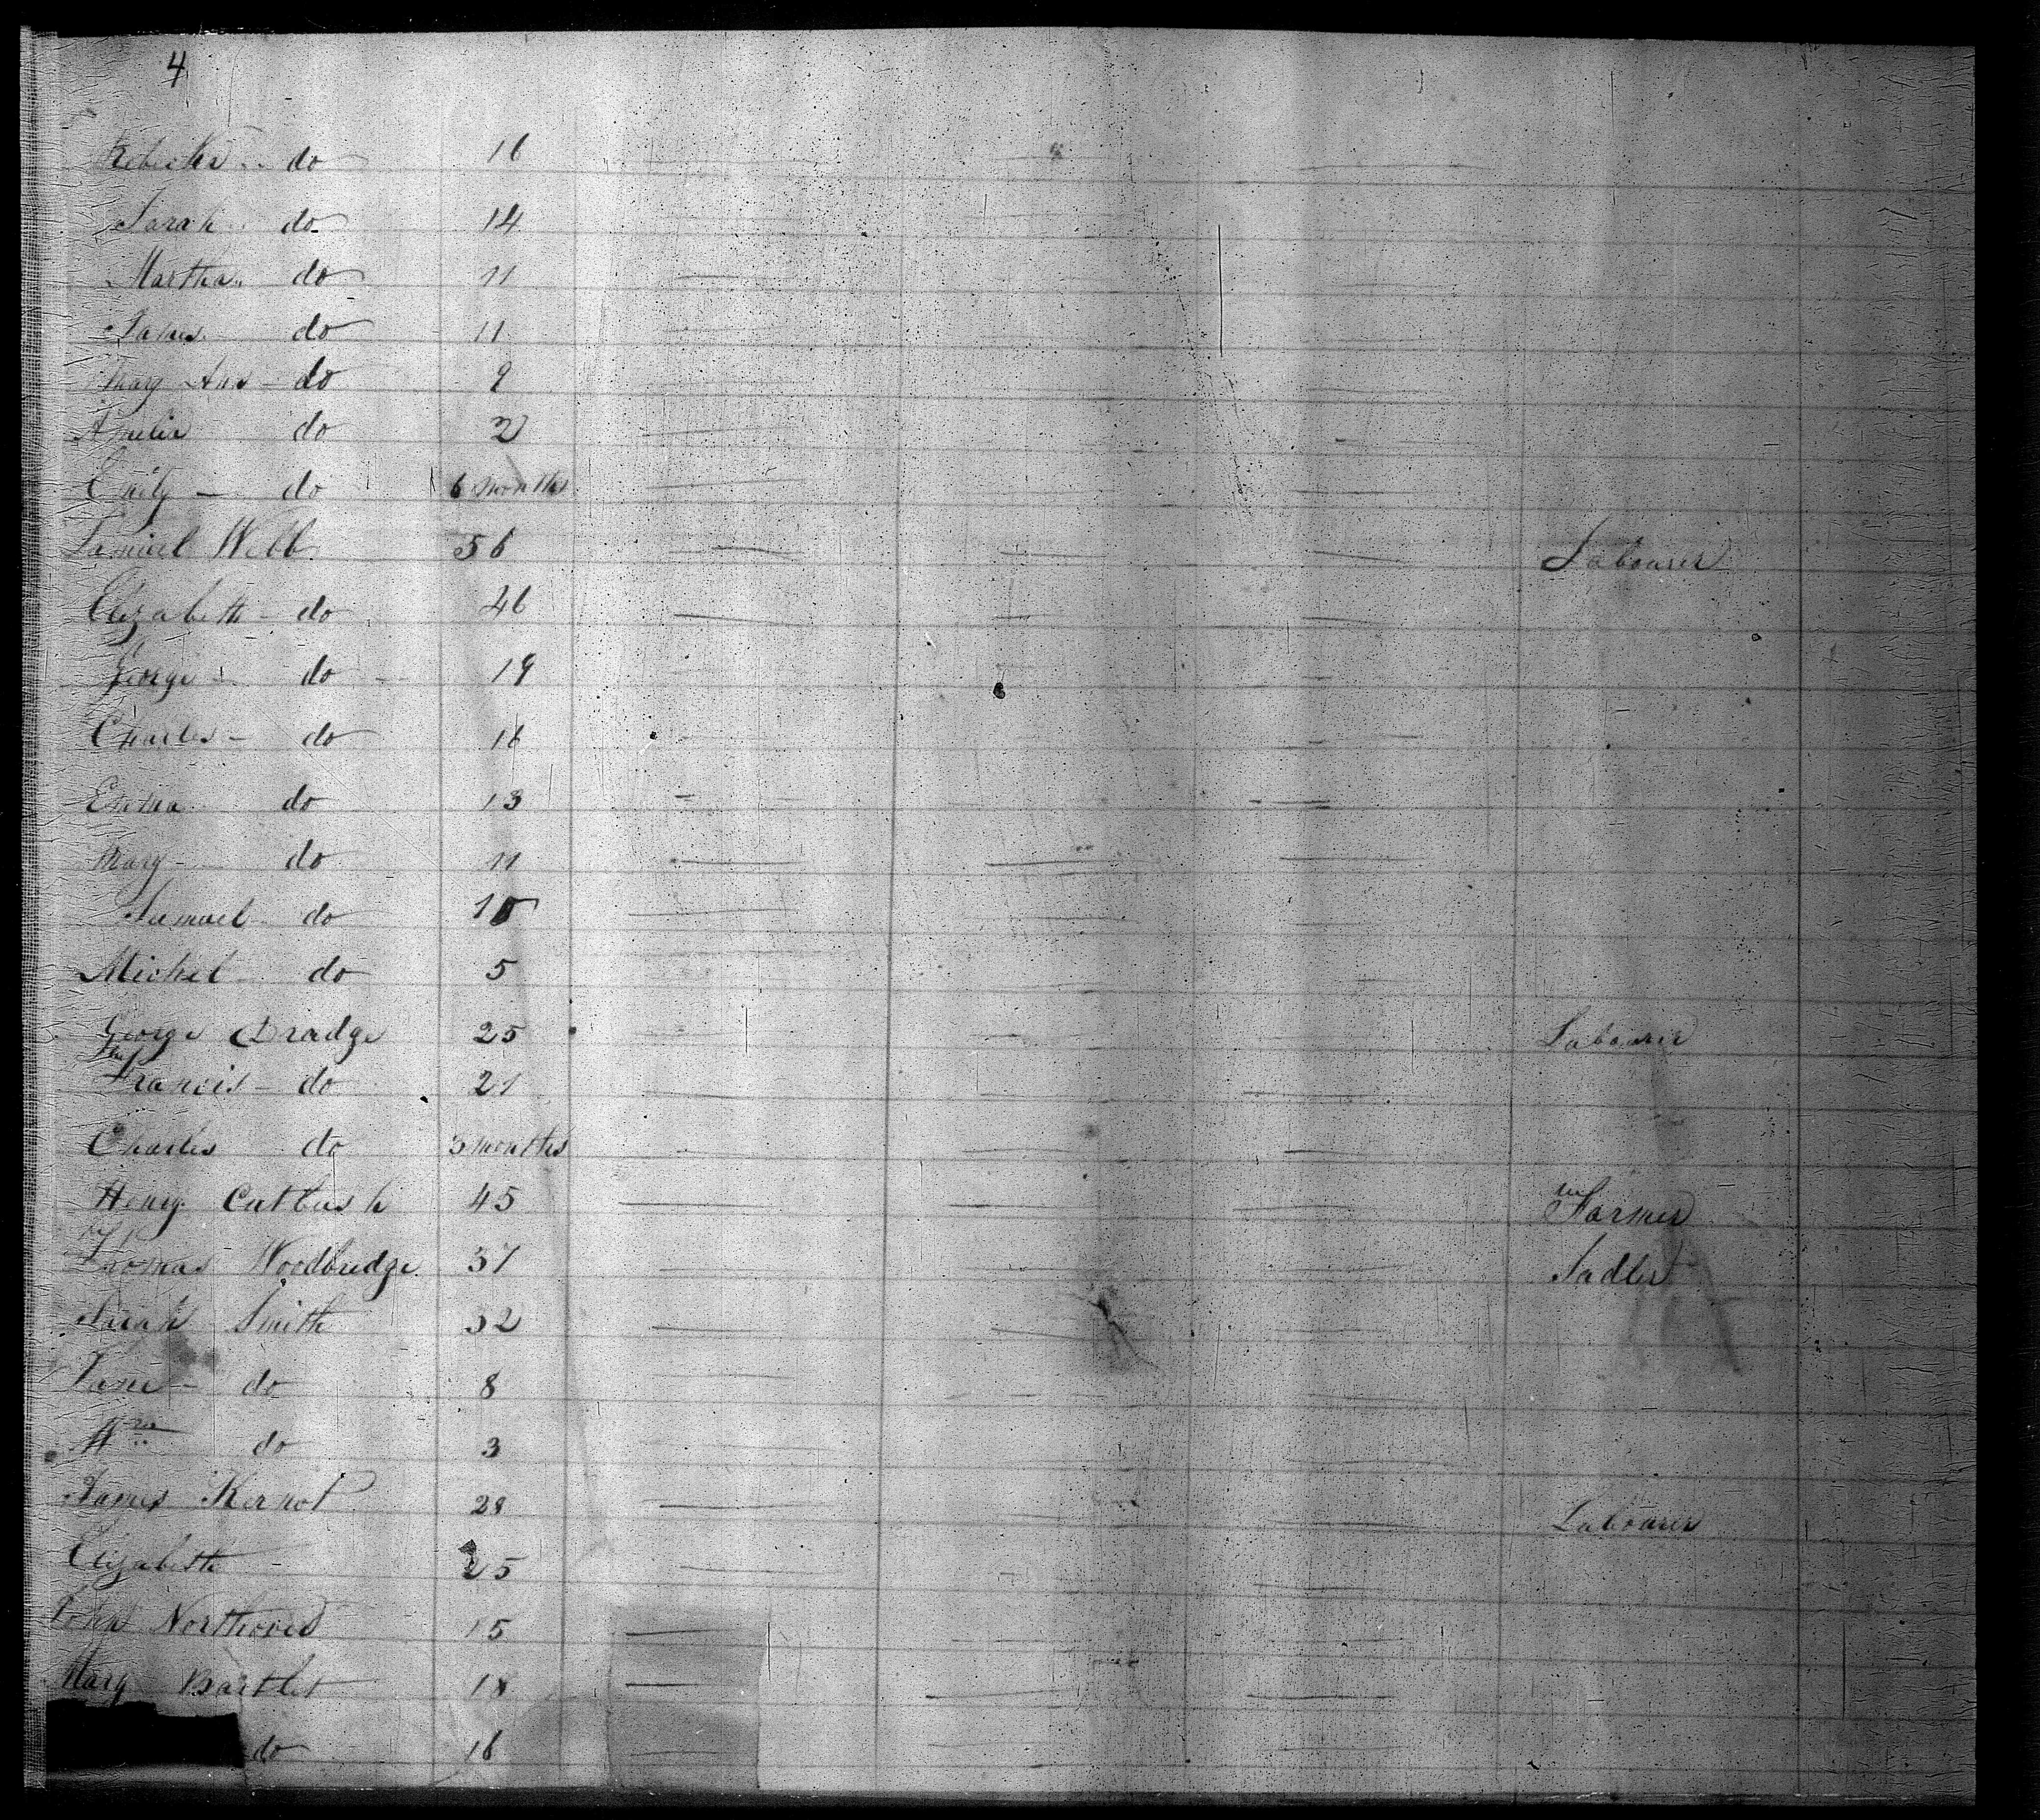 4
Rebecka do 16
Sarah do 14
Martha do 11
James do 11
Mary Ann do 9
Amelia do 2
Emily do 6 months
Samuel Webb 56 Labourer
Elizabeth do 46
George do 19
Charles do 16
Emma do 13
Mary do 11
Samuel do 10
Michel do 5
George Dradge 25 Labourer
Francis do 21
Charles do 3 months
Henry Cutbush 45 Farmer
Thomas Woodbridge 37 Sadler
Sarah Smith 32
Jane do 8
Wm do 3
James Kernot 28 Labourer
Elizabeth 25
John Northover 15
Mary Bartlet 18
do 16